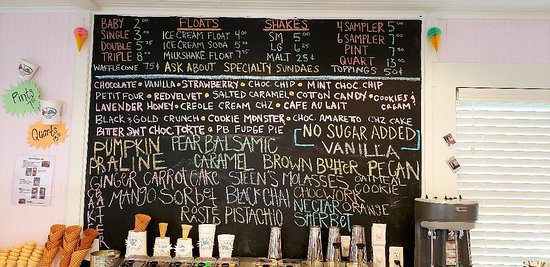 BABY 2.00 FLOATS SHAKES 4 SAMPLER 5.00
SINGLE 3.00 ICE CREAM FLOAT 4.00 SM 5.00 6 SAMPLER 7.00
DOUBLE 5.75 ICE CREAM SODA 5.00 LG 6.25 PINT 7.00
TRIPLE 8.00 MILKSHAKE FLOAT 7.00 MALT 25¢ QUART 13.00
WAFFLE CONE 75¢ ASK ABOUT SPECIALTY SUNDAES TOPPINGS 50¢
CHOCOLATE VANILLA STRAWBERRY CHOC CHIP MINT CHOC. CHIP
PETIT FOUR RED VELVET SALTED CARAMEL COTTON CANDY COOKIES &
LAVENDER HONEY CREOLE CREAM CHZ CAFE AU LAIT CREAM!
BLACK & GOLD CRUNCH COOKIE MONSTER CHOC. AMARETO CHZ CAKE
BITTER SWT CHOC TORTE PB FUDGE PIE NO SUGAR ADDED
VANILLA
PUMPKIN PEAR BALSAMIC
PRALINE CARAMEL BROWN BUTTER PECAN
GINGER CARROT CAKE STEEN'S MOLASSES OATMEAL
COOKIE
MANGO SORBET BLACK CHAI CHOCWORK
NECTAR ORANGE
ROSTE PISTACHIO SHERBET
Pints
Quarts